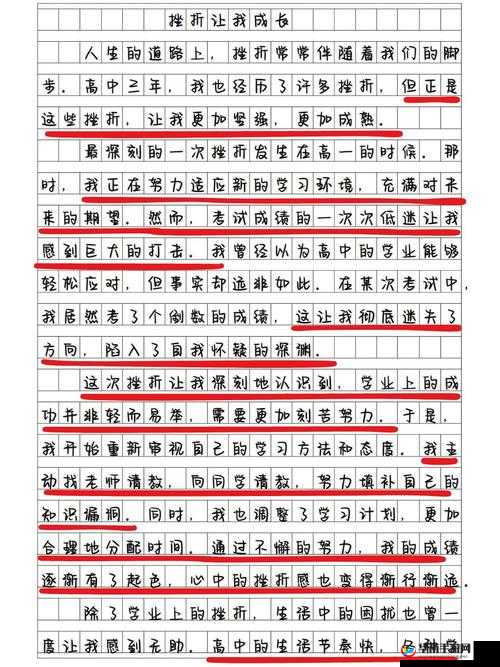 挫折让我成长
人生的道路上，挫折常常伴随着我们的脚
步.高中三年，我也经历了许多挫折，但正是
这些挫折，让我更加坚强，更加成熟.
最深刻的一次挫折发生在高一的时候.那
时，我正在努力适应新的学习环境，充满对未
来的期望.然而，考试成绩的一次次低迷让我
感到巨大的打击.我曾经以为高中的学业能够
轻松应对，但事实却远非如此.在某次考试中，
我居然考了个倒数的成绩，这让我彻底迷失了
方向，陷入了自我怀疑的深渊.
这次挫折让我深刻地认识到，学业上的成
功并非轻而易举，需要更加刻苦努力.于是，
我开始重新审视自己的学习方法和态度.我主
动找老师请教，向同学请教，努力填补自己的
知识漏洞.同时，我也调整了学习计划，更加
合理地分配时间.通过不懈的努力，我的成绩
逐渐有了起色，心中的挫折感也变得渐行渐远.
除了学业上的挫折，生活中的困扰也曾一
度让我感到无助.高中的生活节奏快，各种学